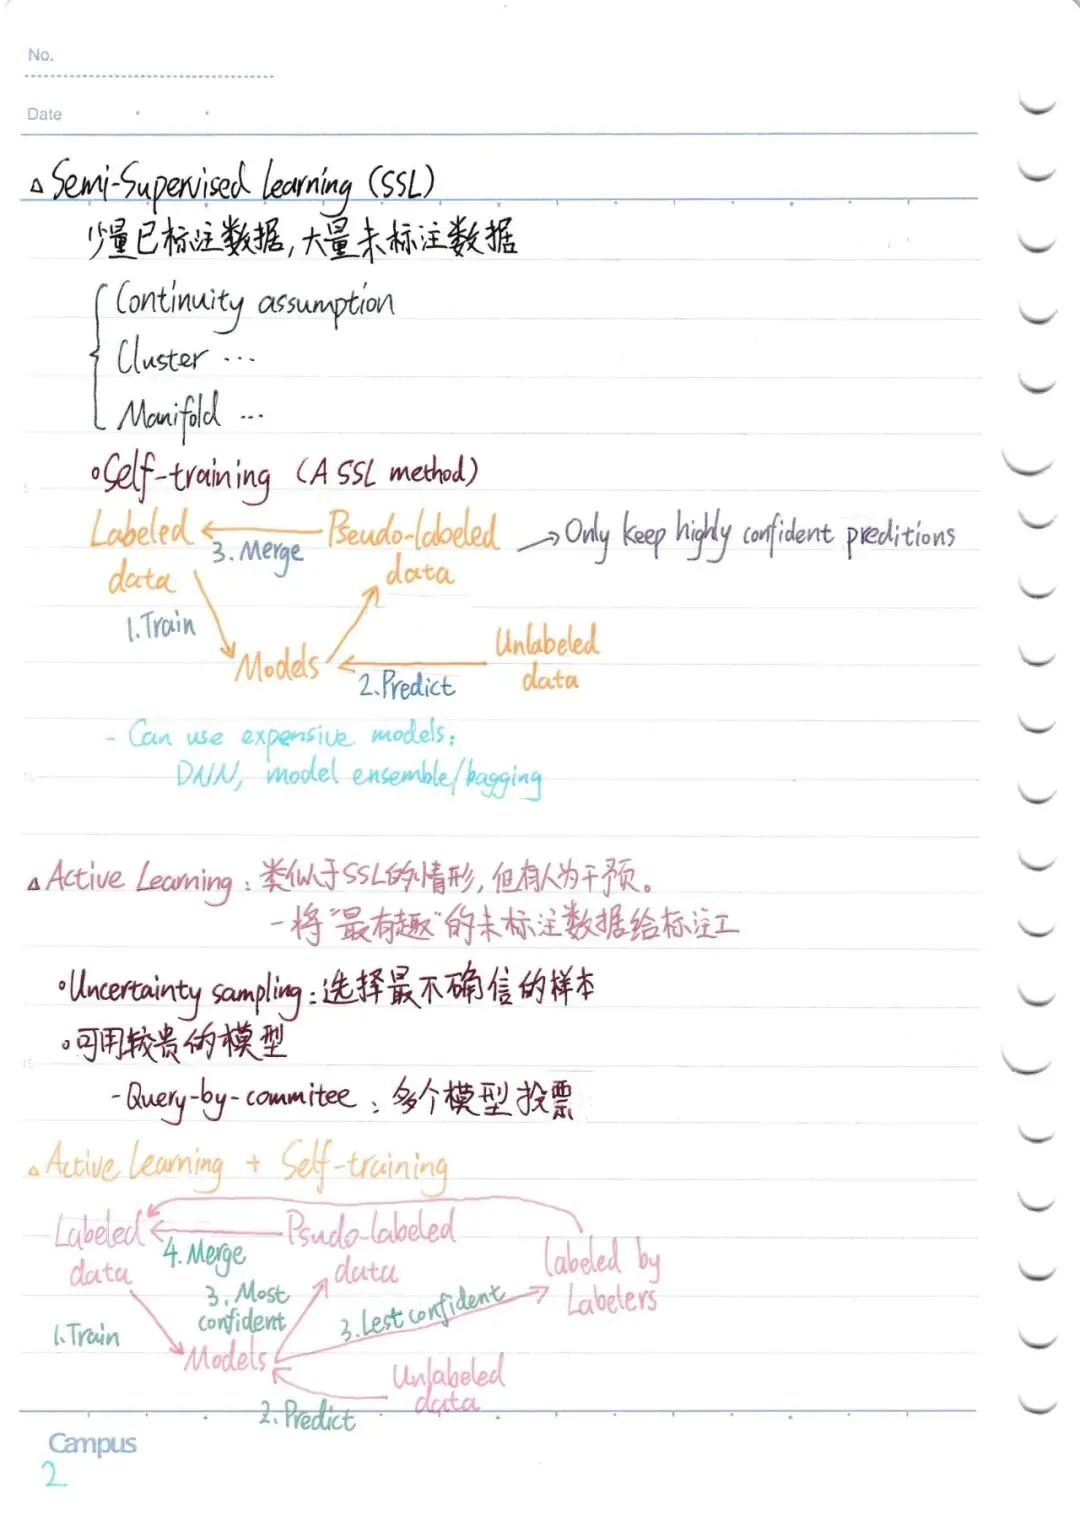 No.
Date
△ Semi-Supervised Learning (SSL)
少量已标注数据,大量未标注数据
Continuity assumption
Cluster ...
Manifold ...
∘Self-training (A SSL method)
Labeled data
3. Merge
Pseudo-labeled data
→ Only keep highly confident preditions
1.Train
Models
2.Predict
Unlabeled data
- Can use expensive models:
DNN, model ensemble/bagging
△ Active Learning: 类似于SSL的情形,但有人为干预。
- 将"最有趣"的未标注数据给标注工
∘Uncertainty sampling: 选择最不确信的样本
∘可用较贵的模型
- Query-by-commitee: 多个模型投票
△ Active Learning + Self-training
Labeled data
4. Merge
Psudo-labeled data
labeled by Labelers
3. Most confident
3. Lest confident
1.Train
Models
Unlabeled data
2. Predict
Campus
2